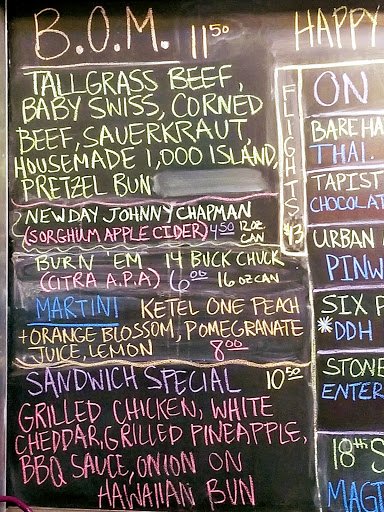 B.O.M. 11 50
TALLGRASS BEEF,
BABY SWISS, CORNED
BEEF, SAUERKRAUT,
HOUSEMADE 1,000 ISLAND,
PRETZEL BUN
NEW DAY JOHNNY CHAPMAN
(SORGHUM APPLE CIDER) 4 50 12 OZ. CAN
BURN 'EM 14 BUCK CHUCK
(CITRA A.P.A) 6 00 16 OZ CAN
MARTINI KETEL ONE PEACH
+ORANGE BLOSSOM, POMEGRANATE
JUICE, LEMON 8 00
SANDWICH SPECIAL 10 50
GRILLED CHICKEN, WHITE
CHEDDAR, GRILLED PINEAPPLE,
BBQ SAUCE, ONION ON
HAWAIIAN BUN
FLIGHTS
$13
HAPPY
ON
BARE HA
THAI
TAPIST
CHOCOLAT
URBAN
PINW
SIX P
*DDH
STONE
ENTER
18TH S
MAGT